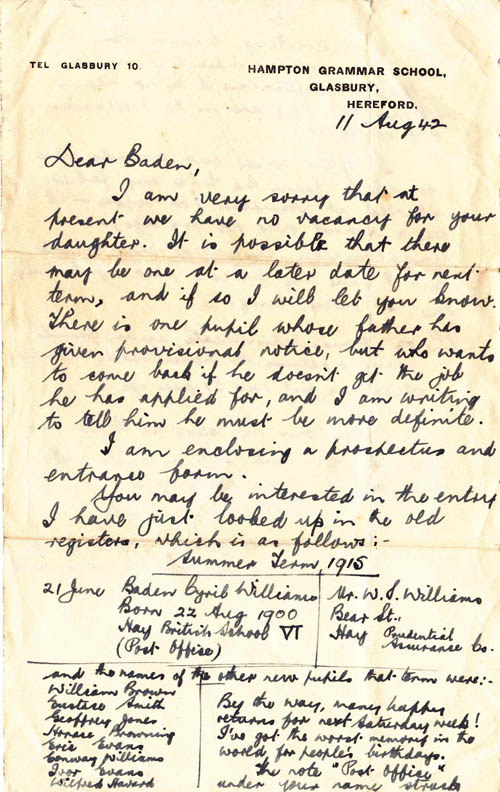 TEL GLASBURY 10.
HAMPTON GRAMMAR SCHOOL,
GLASBURY,
HEREFORD.
11 Aug 42
Dear Baden,
I am very sorry that at
present we have no vacancy for your
daughter. It is possible that there
may be one at a later date for next
term, and if so I will let you know.
There is one pupil whose father has
given provisional notice, but who wants
to come back if he doesn't get the job
he has applied for, and I am writing
to tell him he must be more definite.
I am enclosing a prospectus and
entrance form.
You may be interested in the entry
I have just looked up in the old
registers, which is as follows:-
Summer Term, 1915
21 June Baden Cyril Williams
Born 22 Aug 1900
Hay British School VI
(Post Office)
Mr. W. S. Williams
Bear St.,
Hay Prudential
Assurance Co.
and the names of the other new pupils that term were:-
William Brown
Eustace Smith
Geoffrey Jones
Horace Browning
Eric Evans
Conway Williams
Ivor Evans
Wilfred Havard
By the way, many happy
returns for next Saturday week!
I've got the worst memory in the
world for people's birthdays.
The note "Post Office"
under your name struck